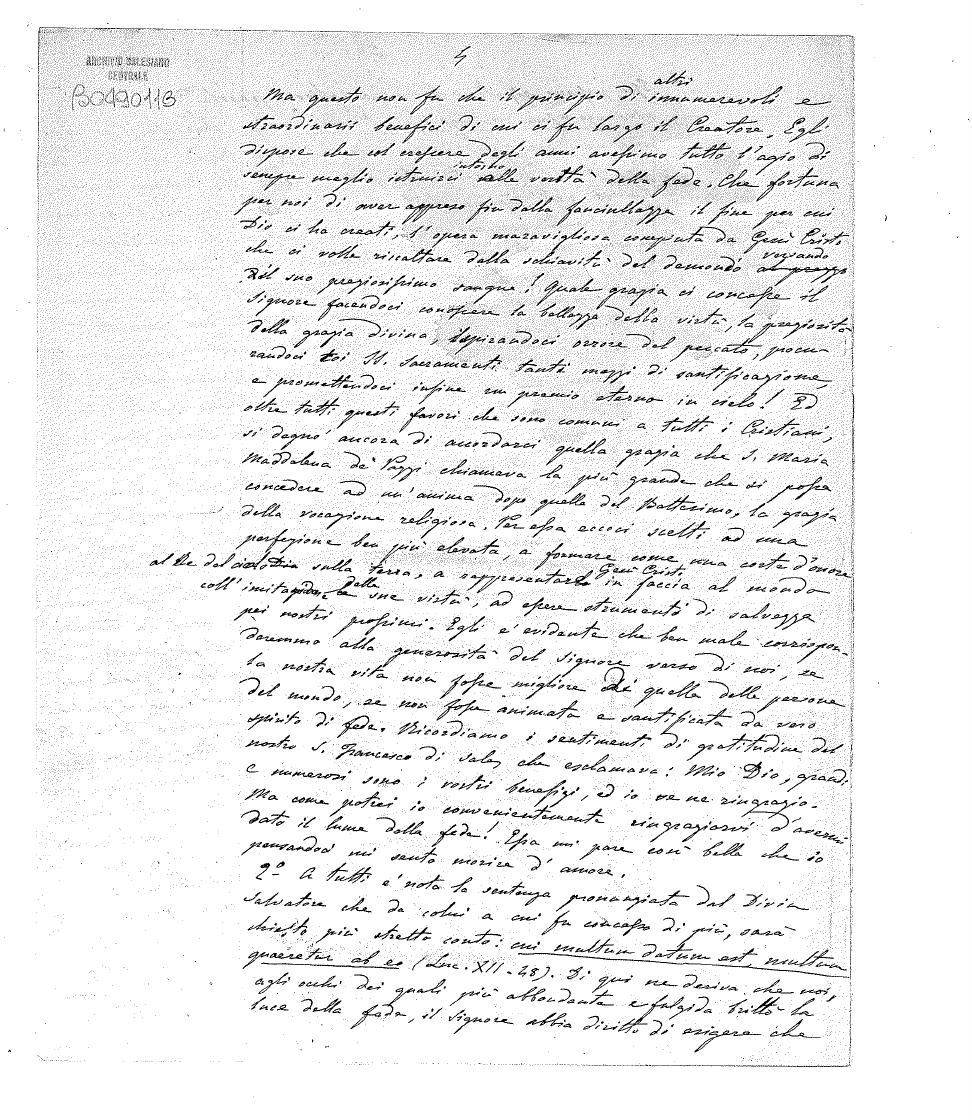 4
ARCHIVIO SALESIANO
CENTRALE
B0490113
altri
Ma questo non fu che il principio di innumerevoli e
straordinarii benefici di cui ci fu largo il Creatore. Egli
dispose che col crescere degli anni avessimo tutto l'agio di
intorno
sempre meglio istruirci alle verità della fede. Che fortuna
per noi di aver appreso fin dalla fanciullezza il fine per cui
Dio ci ha creati, l'opera maravigliosa compiuta da Gesù Cristo
versando
che ci volle riscattare dalla schiavitù del demonio a prezzo
il suo preziosissimo sangue! Quale grazia ci concesse il
Signore facendoci conoscere la bellezza della virtù, la preziosità
della grazia divina, ispirandoci orrore del peccato, procu-
randoci coi SS. Sacramenti tanti mezzi di santificazione,
e promettendoci infine un premio eterno in cielo! Ed
oltre tutti questi favori che sono comuni a tutti i Cristiani,
si degnò ancora di accordarci quella grazia che S. Maria
Maddalena de' Pazzi chiamava la più grande che si possa
concedere ad un'anima dopo quella del Battesimo, la grazia
della vocazione religiosa. Per essa eccoci scelti ad una
perfezione ben più elevata, a formare come una corte d'onore
Gesù Cristo
al Re del cielo sulla terra, a rappresentare in faccia al mondo
della
coll' imitazione sue virtù, ad essere strumento di salvezza
pei nostri prossimi. Egli è evidente che ben male corrispon-
deremmo alla generosità del Signore verso di noi, se
la nostra vita non fosse migliore di quella delle persone
del mondo, se non fosse animata e santificata da vero
spirito di fede. Ricordiamo i sentimenti di gratitudine del
nostro S. Francesco di Sales che esclamava: Mio Dio, grandi
e numerosi sono i vostri benefizi, ed io ve ne ringrazio.
Ma come potrei io convenientemente ringraziarvi d'avermi
dato il lume della fede! Essa mi pare così bella che io
pensandoci mi sento morire d'amore.
2º A tutti è nota la sentenza pronunziata dal Divin
Salvatore che da colui a cui fu concesso di più, sarà
chiesto più stretto conto: cui multum datum est, multum
quaeretur ab eo (Luc. XII-48). Di qui ne deriva che noi,
agli occhi dei quali più abbondante e fulgida brillò la
luce della fede, il Signore abbia diritto di esigere che